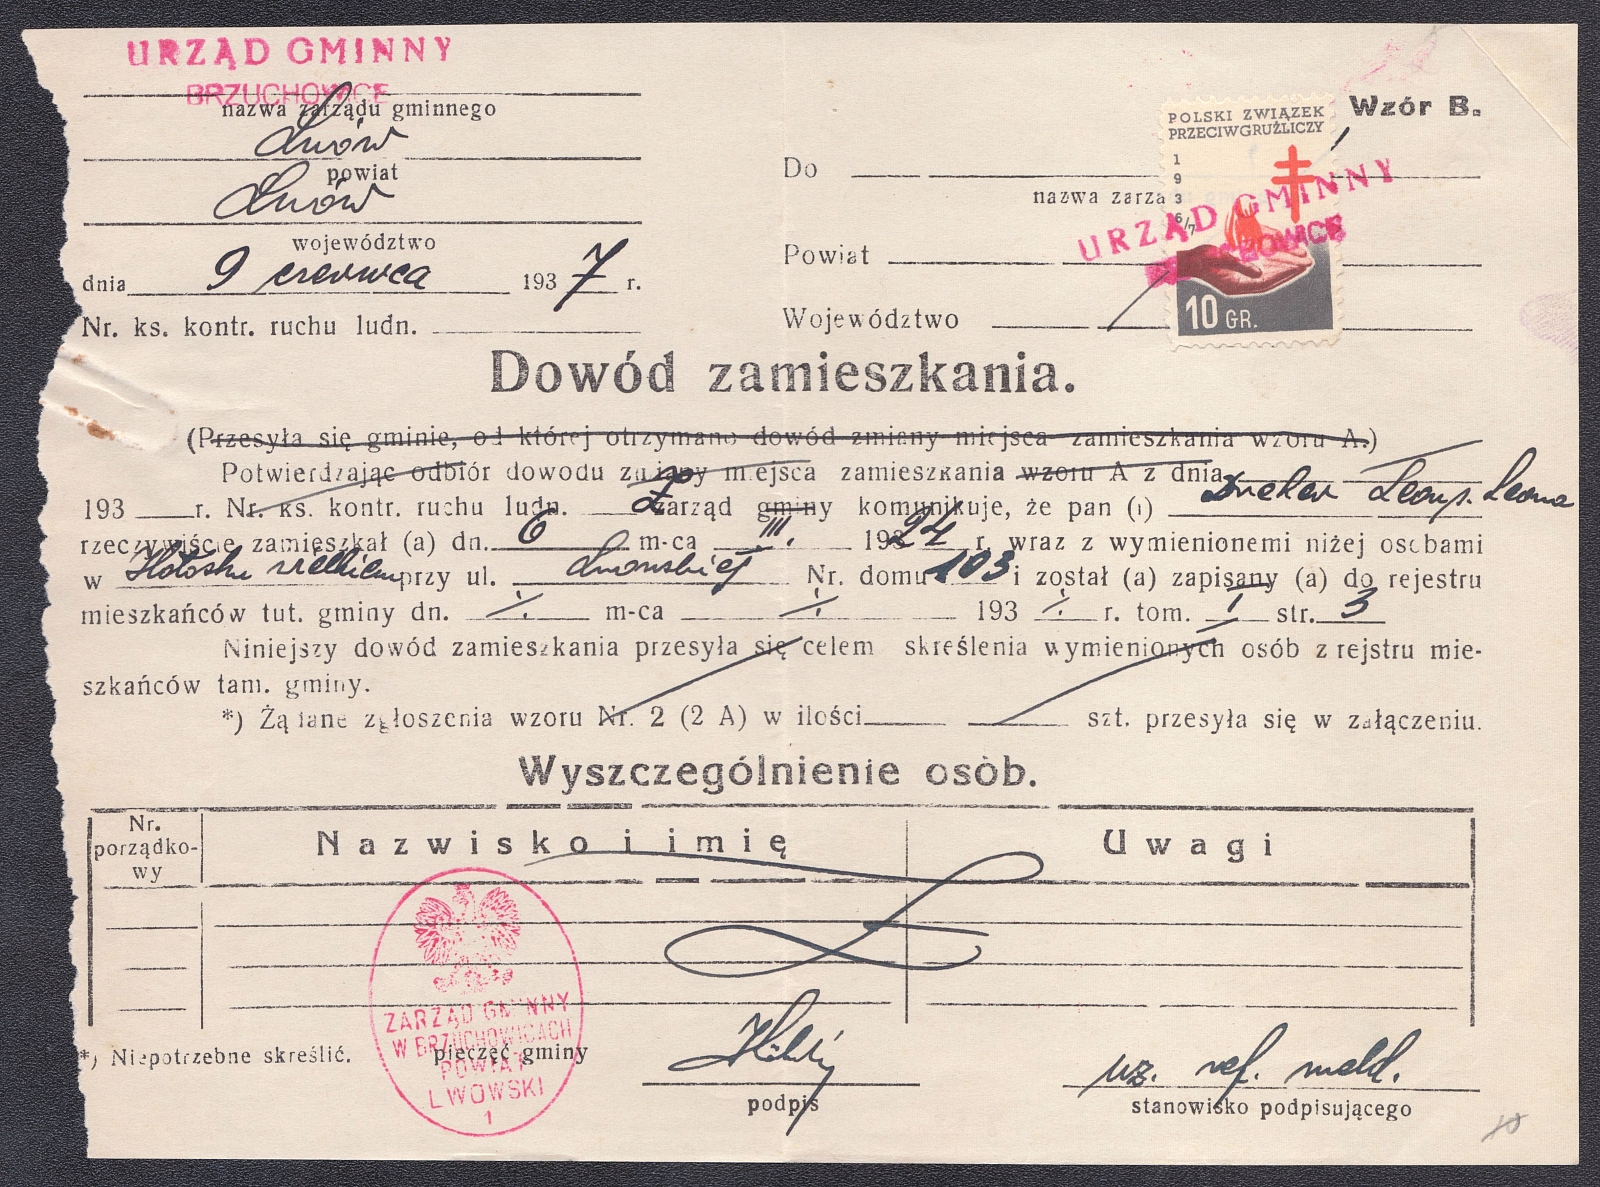 URZĄD GMINNY
BRZUCHOWICE
nazwa zarządu gminnego
Lwów
powiat
Lwów
województwo
dnia 9 czerwca 1937 r.
Nr. ks. kontr. ruchu ludn.
Wzór B.
POLSKI ZWIĄZEK
PRZECIWGRUŹLICZY
1
9
3
6/7
10 GR.
Do
nazwa zarza
URZĄD GMINNY
ZOWICE
Powiat
Województwo
Dowód zamieszkania.
(Przesyła się gminie, od której otrzymano dowód zmiany miejsca zamieszkania wzoru A.)
Potwierdzając odbiór dowodu zmiany miejsca zamieszkania wzoru A z dnia
193 r. Nr. ks. kontr. ruchu ludn. Zarząd gminy komunikuje, że pan (i) Leon s. Leona
rzeczywiście zamieszkał (a) dn. 6 m-ca III. 1924 r. wraz z wymienionemi niżej osobami
w Hołosku wielkiem przy ul. Lwowskiej Nr. domu 103 i został (a) zapisany (a) do rejestru
mieszkańców tut. gminy dn. /. m-ca /. 193 /. r. tom. I str. 3
Niniejszy dowód zamieszkania przesyła się celem skreślenia wymienionych osób z rejstru mie-
szkańców tam. gminy.
*) Żądane zgłoszenia wzoru Nr. 2 (2 A) w ilości szt. przesyła się w załączeniu.
Wyszczególnienie osób.
Nr. porządko-wy
Nazwisko i imię
Uwagi
ZARZĄD GMINNY
W BRZUCHOWICACH
POWIAT
LWOWSKI
1
*) Niepotrzebne skreślić.
pieczęć gminy
podpis
uz. ref. meld.
stanowisko podpisującego